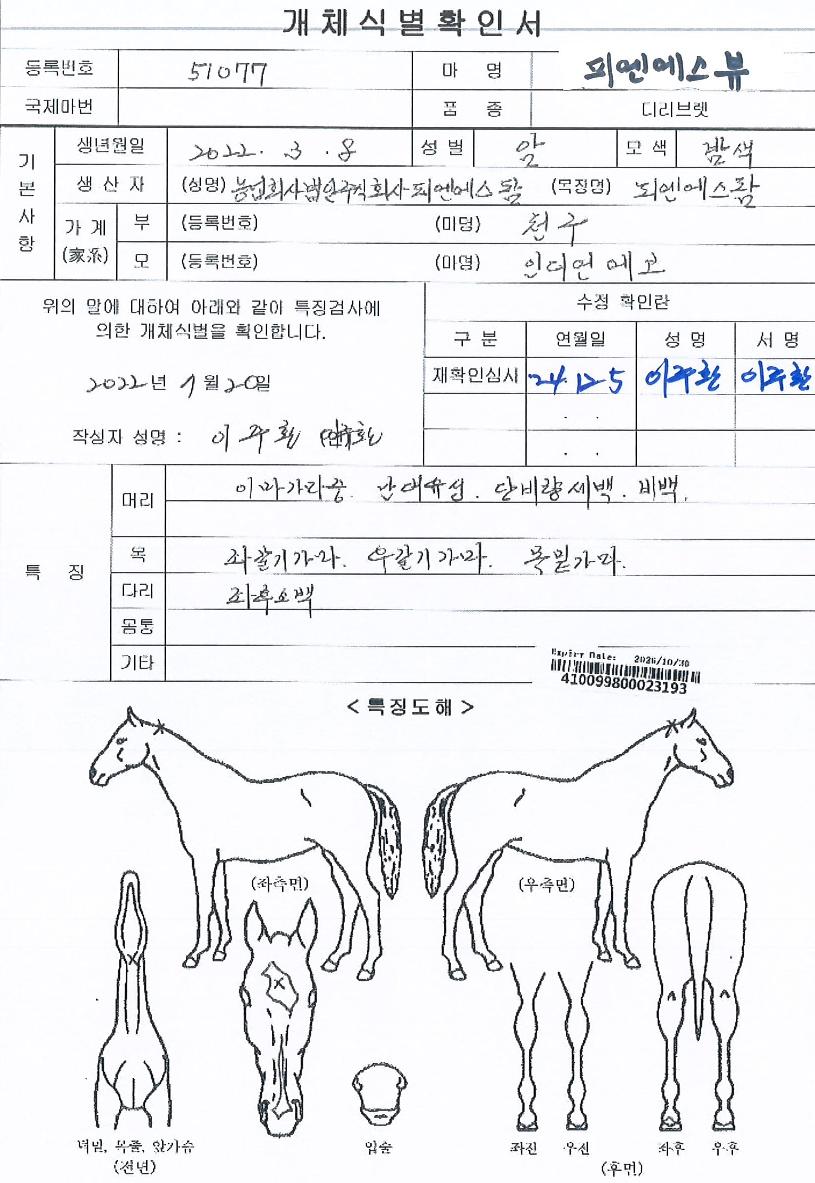 개체식별확인서
등록번호 51077 마 명 피엔에스뷰
국제마번 품 종 더러브렛
생년월일 2022. 3. 8 성별 암 모색 밤색
기본사항
생산자 (성명) 농업회사법인주식회사피엔에스팜 (목장명) 피엔에스팜
가계 (家系) 부 (등록번호) (마명) 천구
모 (등록번호) (마명) 인디언에고
위의 말에 대하여 아래와 같이 특징검사에
의한 개체식별을 확인합니다.
2022년 7월 20일
작성자 성명 : 이주환
수정 확인란
구분 연월일 성명 서명
재확인심사 24.12.5 이주환 이주환
특징
머리 이마가마중. 난대유성. 단비량세백. 비백.
목 좌갈기가마. 우갈기가마. 목밑가마.
다리 좌후소백
몸통
기타
Expiry Date: 2026/10/30
410099800023193
< 특징도해 >
(좌측면) (우측면)
턱밑, 목줄, 앞가슴
(전면)
입술
좌전 우전 좌후 우후
(후면)